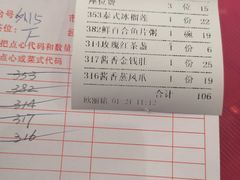 台号 6115
座位: F
市
把点心代码和数量
点心或菜式代码
353
382
314
317
316
座位费 3 位 15
353泰式冰榴莲 1 份 22
382鲜百合鱼片粥 1 碗 19
314玫瑰红茶盏 1 份 6
317酱香金钱肚 1 份 25
316酱香蒸凤爪 1 份 19
合计 106
欧丽娟 01-21 11:12